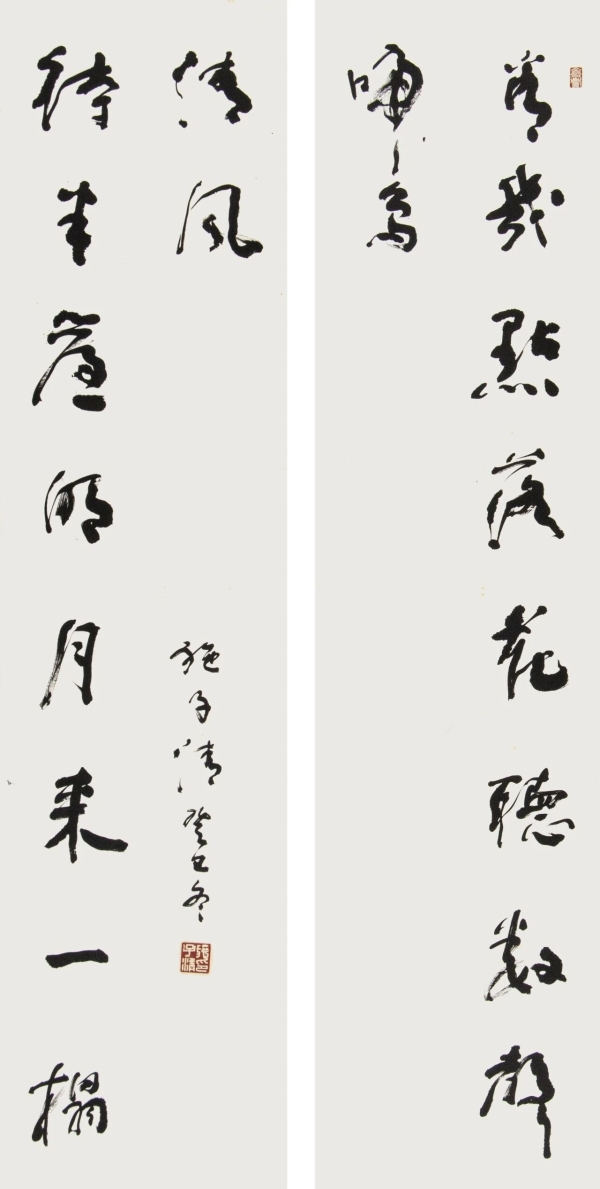 看幾點落花聽數聲
啼鳥
待半簾明月來一榻
清風
施子清癸巳冬
施印子清